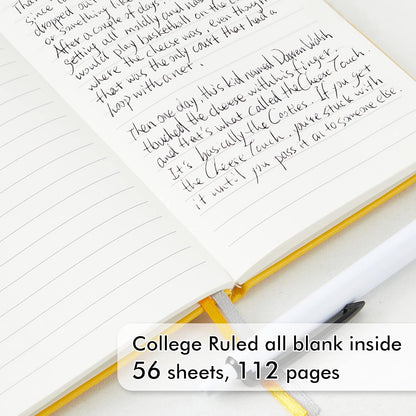 since to
dropped out
or something like
After a couple of days.
getting all moldy and nas
would play basketball on the co
where the cheese was, even though
that was the only court that had a
hoop with a net.
Then one day, this kid named Darren Walsh
touched the cheese with his finger.
and that's what called the Cheese Touch.
It's basically the Cooties. If you get
the Cheese Touch, you're stuck with
it until you pass it on to someone else.
College Ruled all blank inside
56 sheets, 112 pages